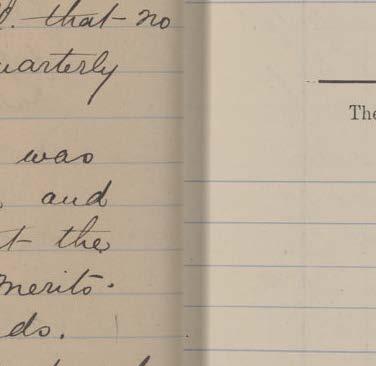 that no
uarterly
was
and
t the
merits.
ds.
The